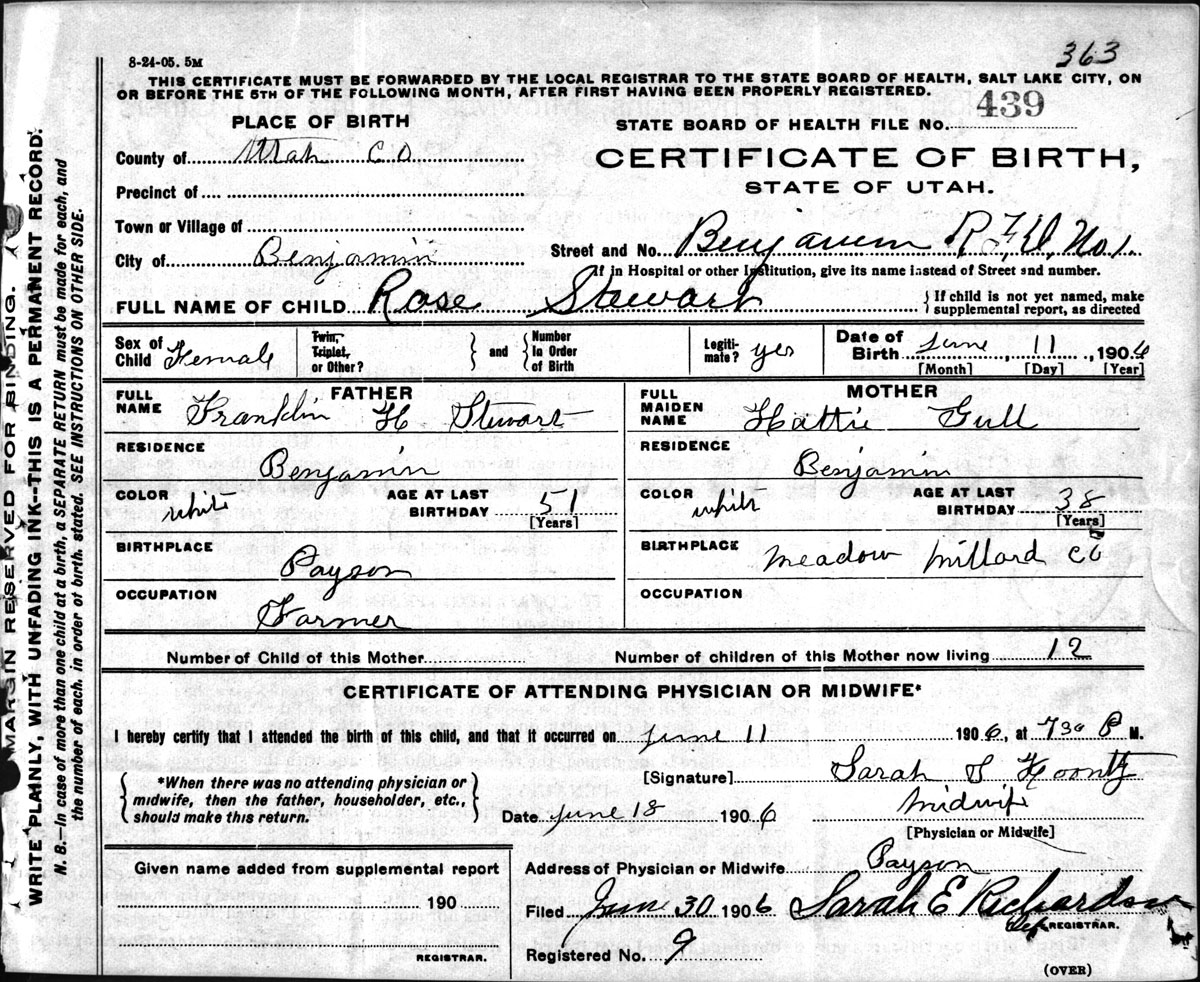 363
8-24-05. 5M
THIS CERTIFICATE MUST BE FORWARDED BY THE LOCAL REGISTRAR TO THE STATE BOARD OF HEALTH, SALT LAKE CITY, ON
OR BEFORE THE 5TH OF THE FOLLOWING MONTH, AFTER FIRST HAVING BEEN PROPERLY REGISTERED.
PLACE OF BIRTH
STATE BOARD OF HEALTH FILE No. 439
County of Utah CO
CERTIFICATE OF BIRTH,
STATE OF UTAH.
Precinct of
Town or Village of
City of Benjamin
Street and No. Benjamin R.F.D. No 1.
If in Hospital or other Institution, give its name instead of Street and number.
FULL NAME OF CHILD Rose Stewart
} If child is not yet named, make
supplemental report, as directed
Sex of Child Female
Twin, Triplet, or Other? } and { Number In Order of Birth
Legiti-mate? yes
Date of Birth June, 11, 1906
[Month] [Day] [Year]
FATHER
FULL NAME Franklin H Stewart
RESIDENCE Benjamin
COLOR white AGE AT LAST BIRTHDAY 51
[Years]
BIRTHPLACE Payson
OCCUPATION Farmer
MOTHER
FULL MAIDEN NAME Hattie Gull
RESIDENCE Benjamin
COLOR white AGE AT LAST BIRTHDAY 38
[Years]
BIRTHPLACE Meadow Millard CO
OCCUPATION
Number of Child of this Mother
Number of children of this Mother now living 12
CERTIFICATE OF ATTENDING PHYSICIAN OR MIDWIFE*
I hereby certify that I attended the birth of this child, and that it occurred on June 11 1906, at 730 P M.
{ *When there was no attending physician or
midwife, then the father, householder, etc.,
should make this return. }
[Signature] Sarah S Koontz
Date June 18 1906 Midwife
[Physician or Midwife]
Given name added from supplemental report
190
REGISTRAR.
Address of Physician or Midwife Payson
Filed June 30 1906 Sarah E Richardson
Dep REGISTRAR.
Registered No. 9
(OVER)
MARGIN RESERVED FOR BINDING.
WRITE PLAINLY, WITH UNFADING INK--THIS IS A PERMANENT RECORD.
N. B.—In case of more than one child at a birth, a SEPARATE RETURN must be made for each, and
the number of each, in order of birth, stated. SEE INSTRUCTIONS ON OTHER SIDE.